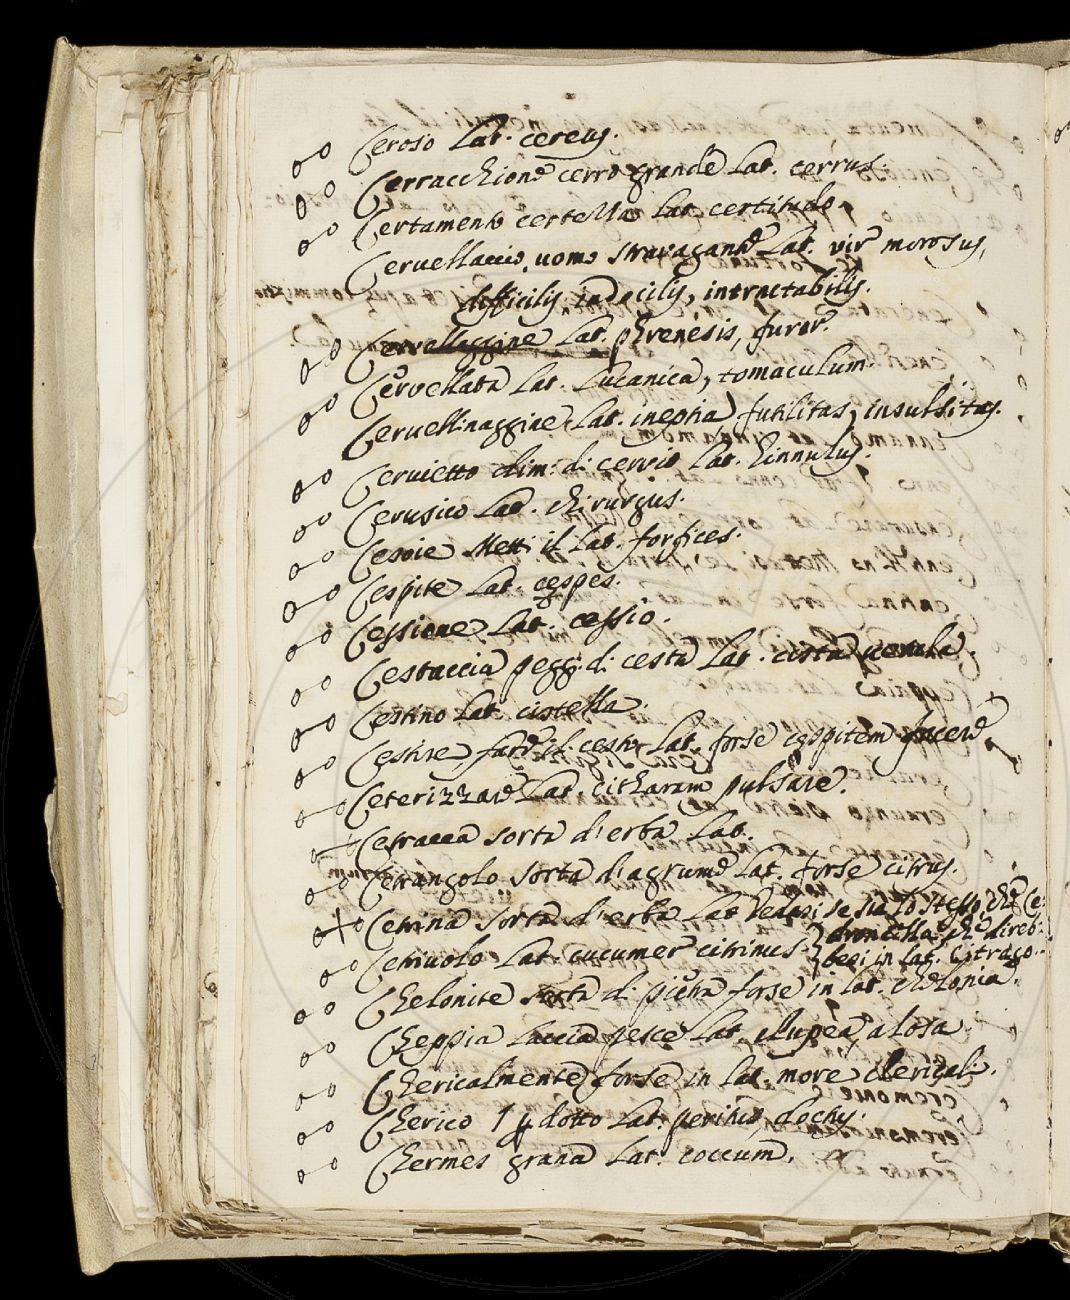 Ceroso Lat. cereus.
Cerracchione cerro grande Lat. cerrus.
Certamento certezza Lat. certitudo.
Cervellaccio uomo stravagante Lat. vir morosus,
difficilis, indocilis, intractabilis.
Cervellaggine Lat. phrenesis, furor.
Cervellata Lat. Lucanica, tomaculum.
Cervellinaggine Lat. ineptia, futilitas, insulsitas.
Cervietto dim: di cervio Lat. hinnulus.
Cerusico Lat. chirurgus.
Cesoie Metti il Lat. forfices.
Cespite Lat. cespes.
Cessione Lat. cessio.
Cestaccia pegg. di cesta Lat. cista
Cestino Lat. cistella.
Cestire fare il cesto Lat. forse cespitem facere
Ceterizzare Lat. citharam pulsare.
Cetracca sorta d'erba Lat.
Cetrangolo sorta d'agrume Lat. forse citrus.
Cetrina sorta d'erba Lat. Vedasi se sia lo stesso, che Ce:
dronella, che direb:
besi in lat. Citrago.
Cetriuolo Lat. cucumer citrinus.
Chelonite sorta di pietra forse in lat. chelonia.
Cheppia Laccia pesce Lat. clupea, alosa
Chericalmente forse in lat. more clericali.
Cherico 1 p dotto Lat. peritus, doctus.
Chermes grana Lat. coccum.